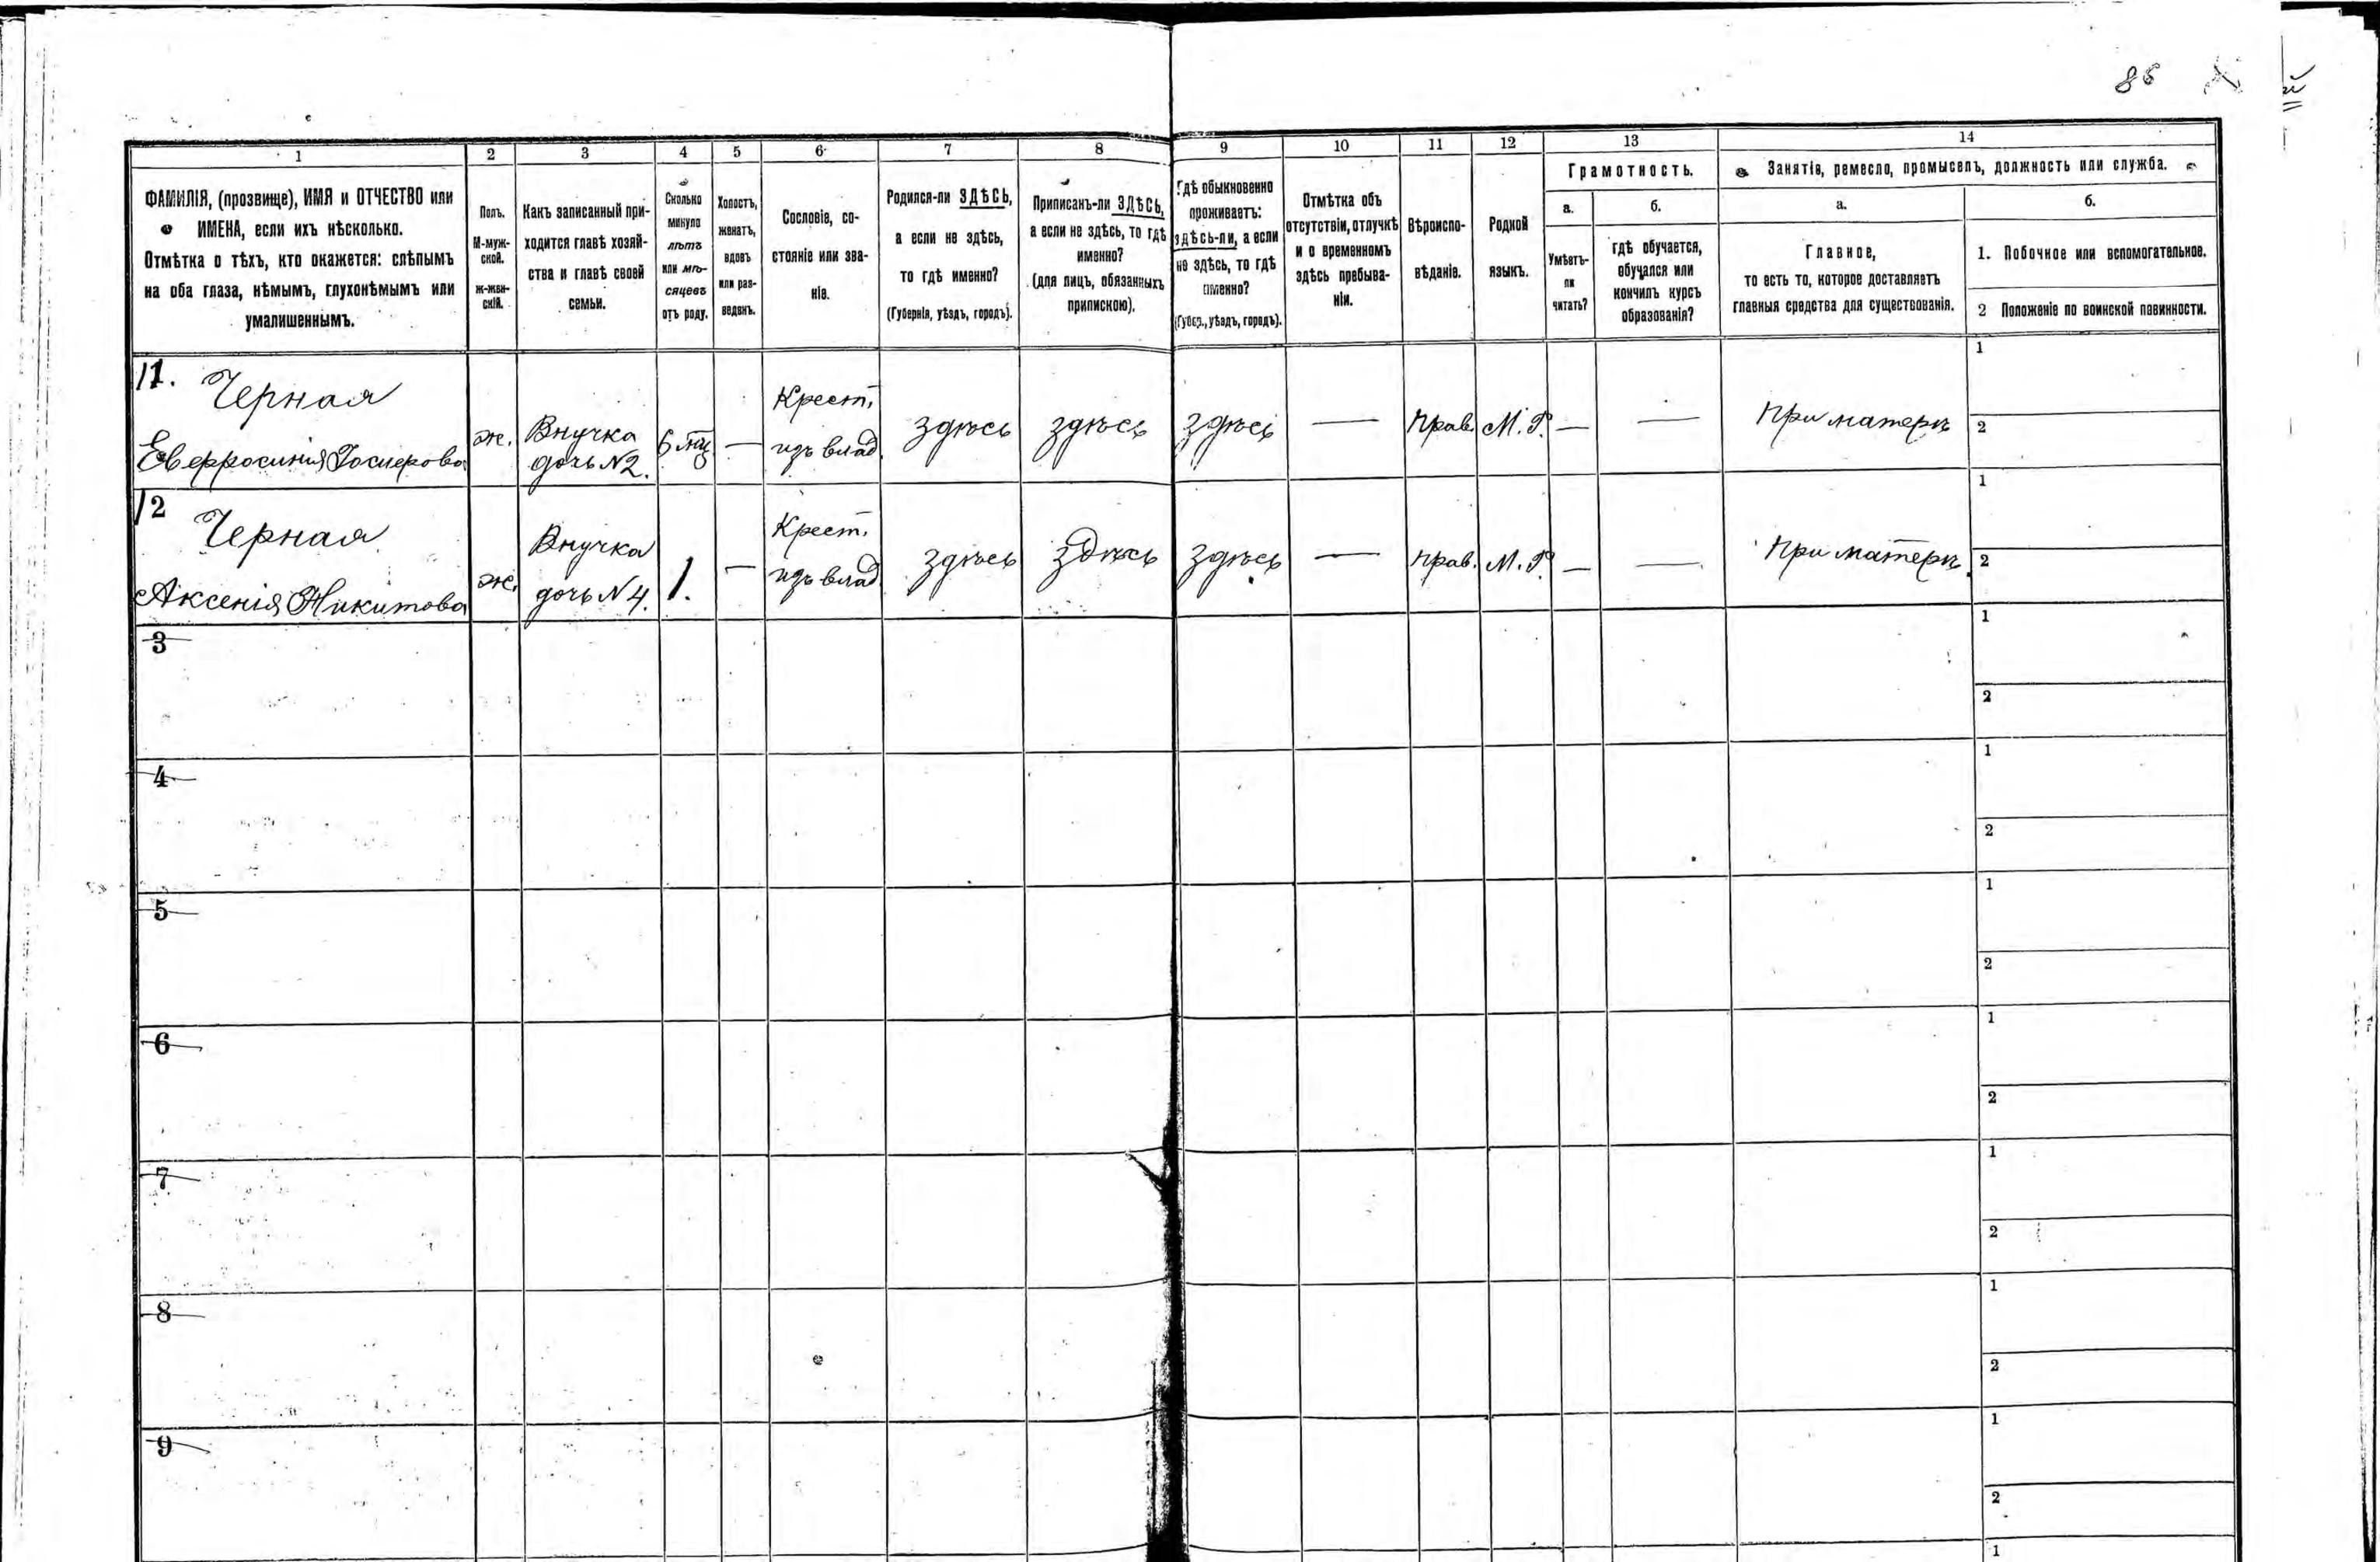 86
1 2 3 4 5 6 7 8 9 10 11 12 13 14
ФАМИЛІЯ, (прозвище), ИМЯ и ОТЧЕСТВО или
ИМЕНА, если ихъ нѣсколько.
Отмѣтка о тѣхъ, кто окажется: слѣпымъ
на оба глаза, нѣмымъ, глухонѣмымъ или
умалишеннымъ.
Полъ.
М-муж-
ской.
ж-жен-
скій.
Какъ записанный при-
ходится главѣ хозяй-
ства и главѣ своей
семьи.
Сколько
минуло
лѣтъ
или мѣ-
сяцевъ
отъ роду.
Холостъ,
женатъ,
вдовъ
или раз-
веденъ.
Сословіе, со-
стояніе или зва-
ніе.
Родился-ли ЗДѢСЬ,
а если не здѣсь,
то гдѣ именно?
(Губернія, уѣздъ, городъ).
Приписанъ-ли ЗДѢСЬ,
а если не здѣсь, то гдѣ
именно?
(для лицъ, обязанныхъ
припискою).
Гдѣ обыкновенно
проживаетъ:
здѣсь-ли, а если
не здѣсь, то гдѣ
именно?
(Губер., уѣздъ, городъ).
Отмѣтка объ
отсутствіи, отлучкѣ
и о временномъ
здѣсь пребыва-
ніи.
Вѣроиспо-
вѣданіе.
Родной
языкъ.
Грамотность.
а.
Умѣетъ-
ли
читать?
б.
гдѣ обучается,
обучался или
кончилъ курсъ
образованія?
Занятіе, ремесло, промыселъ, должность или служба.
а.
Главное,
то есть то, которое доставляетъ
главныя средства для существованія.
б.
1. Побочное или вспомогательное.
2 Положеніе по воинской повинности.
11. Черная
Еверросинія
ж.
Внучка
дочь N2.
6 мц
—
Крест.
изъ влад
здѣсь
здѣсь
здѣсь
—
прав.
М. Р.
—
—
при матери
1
2
12 Черная
Аксенія Никитова
ж.
Внучка
дочь N4.
1.
—
Крест.
изъ влад
здѣсь
здѣсь
здѣсь
—
прав.
М. Р.
—
—
при матери
1
2
3
1
2
4
1
2
5
1
2
6
1
2
7
1
2
8
1
2
9
1
2
1